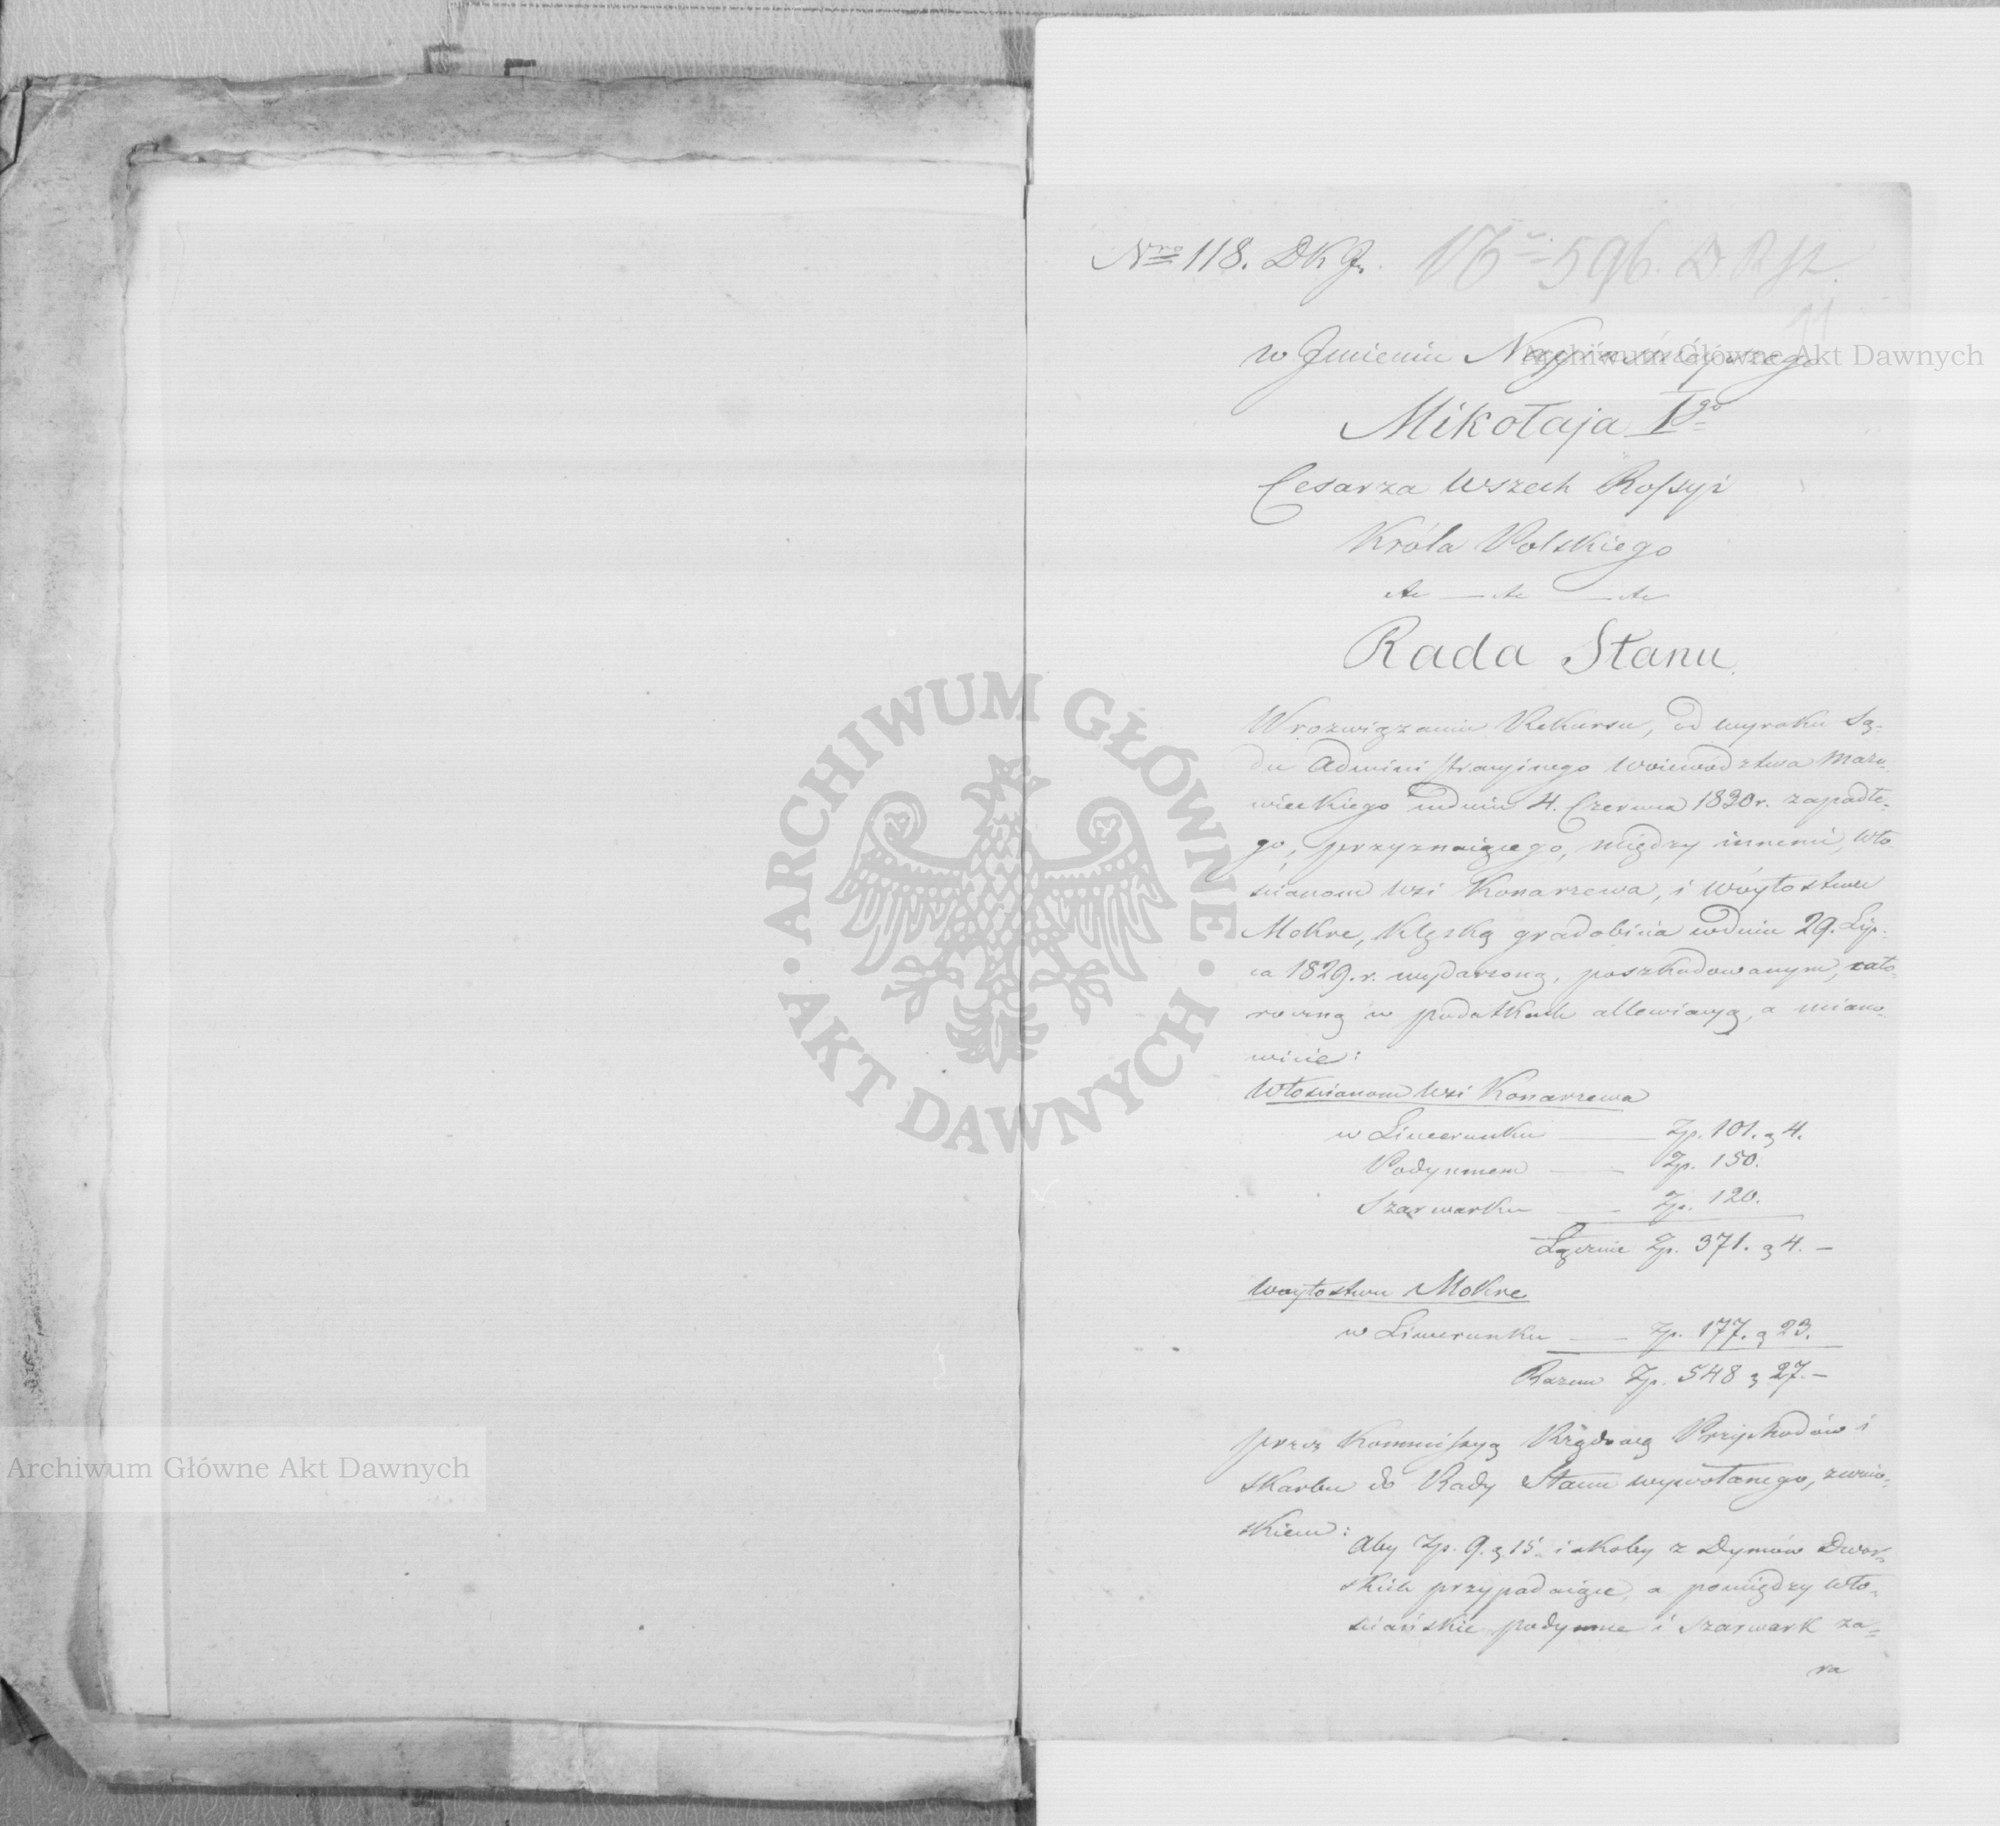 Nro 118. DKJ. 16 596. D R St.
11
w Jmieniu Nayiaśnieyszego
Mikołaja Igo
Cesarza Wszech Rossyi
Króla Polskiego
&c — &c — &c
Rada Stanu
W rozwiązaniu Rekursu, od wyroku Są-
du Administracyinego Woiewództwa Mazo-
wieckiego w dniu 4. Czerwca 1830 r. zapadłe-
go, przyznaiącego, między innemi, Wło
ścianom Wsi Konarzewa, i Wóytostwu
Mokre, klęską gradobicia w dniu 29. Lip-
ca 1829. r. wydarzoną, poszkodowanym, cało-
roczną w podatkach allewiacyą, a miano-
wicie:
Włościanom Wsi Konarzewa
w Liwerunku — Zp. 101. g 4.
Podymnem — Zp. 150.
Szarwarku — Zp. 120.
Łącznie Zp. 371. g 4. —
Woytostwu Mokre
w Liwerunku — Zp. 177. g 23.
Razem Zp. 548 g 27. —
przez Kommissyą Rządową Przychodów i
Skarbu do Rady Stanu wywołanego, z wnio-
skiem:
Aby Zp. 9. g 15. iakoby z Dymów Dwor-
skich przypadaiące, a pomiędzy Wło-
ściańskie podymne i Szarwark za-
ra
Archiwum Główne Akt Dawnych
ARCHIWUM GŁÓWNE · AKT DAWNYCH ·
Archiwum Główne Akt Dawnych